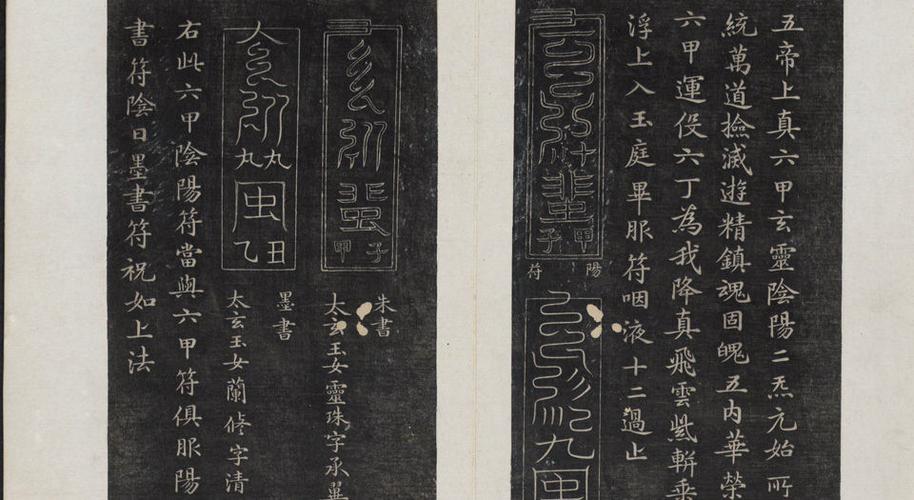 五帝上真六甲玄靈陰陽二炁元始所
統萬道撿滅遊精鎮魂固魄五內華榮
六甲運役六丁為我降真飛雲紫軿乘
浮上入玉庭畢服符咽液十二過止
甲子
陽符
朱書
太玄玉女靈珠字承翼
甲子
墨書
太玄玉女蘭修字清
乙丑
右此六甲陰陽符當與六甲符俱服陽
書符陰日墨書符祝如上法